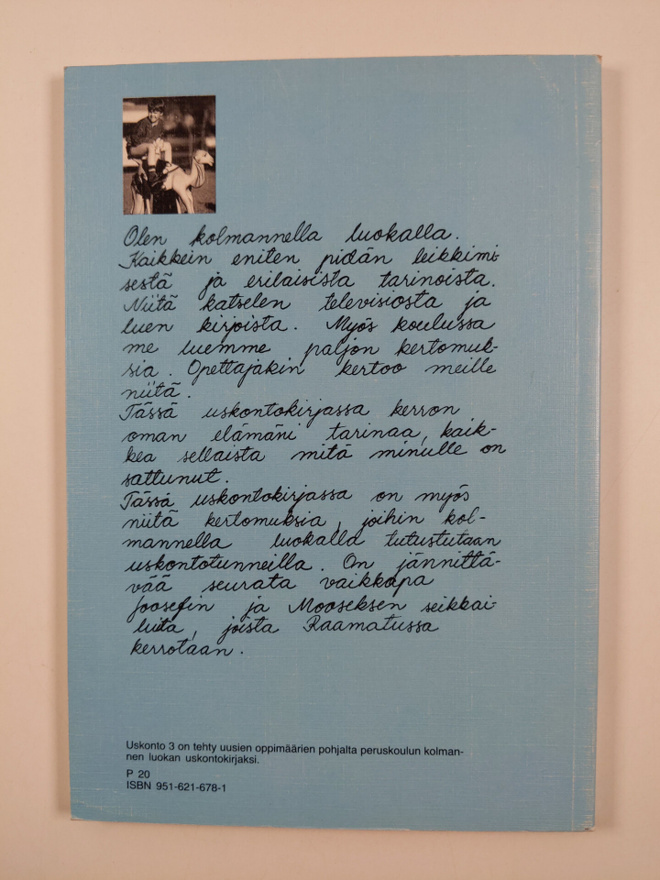 Olen kolmannella luokalla.
Kaikkein eniten pidän leikkimi-
sestä ja erilaisista tarinoista.
Niitä katselen televisiosta ja
luen kirjoista. Myös koulussa
me luemme paljon kertomuk-
sia. Opettajakin kertoo meille
niitä.
Tässä uskontokirjassa kerron
oman elämäni tarinaa, kaik-
kea sellaista mitä minulle on
sattunut.
Tässä uskontokirjassa on myös
niitä kertomuksia, joihin kol-
mannella luokalla tutustutaan
uskontotunneilla. On jännittä-
vää seurata vaikkapa
Joosefin ja Mooseksen seikkai-
luita, joista Raamatussa
kerrotaan.
Uskonto 3 on tehty uusien oppimäärien pohjalta peruskoulun kolman-
nen luokan uskontokirjaksi.
P 20
ISBN 951-621-678-1